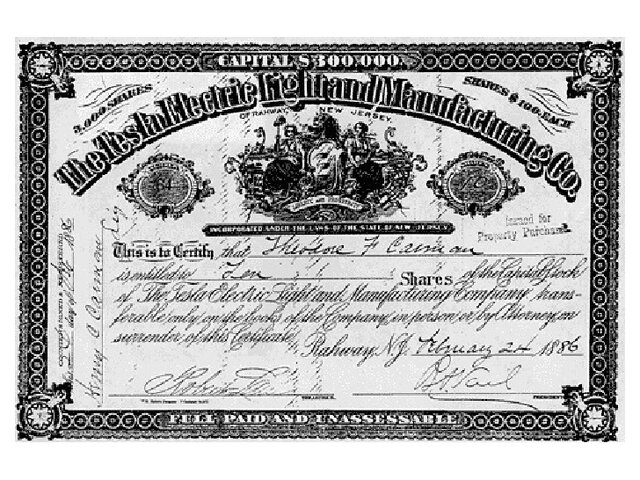 CAPITAL $300,000.
3,000 SHARES
SHARES $100 EACH
The Tesla Electric Light and Manufacturing Co.
OF RAHWAY, NEW JERSEY.
INCORPORATED UNDER THE LAWS OF THE STATE OF NEW JERSEY
Issued for
Property Purchased
This is to Certify that Theodore F Carman
is entitled to Ten Shares of the Capital Stock
of The Tesla Electric Light and Manufacturing Company, trans-
ferable only on the books of the Company, in person or by Attorney, on
surrender of this Certificate.
Rahway, N.J. February 24 1886
TREASURER.
PRESIDENT
FULL PAID AND UNASSESSABLE